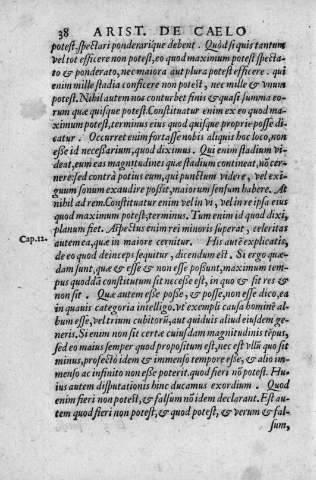 38 ARIST. DE CAELO
potest, spectari ponderarique debent. Quòd si quis tantum
vel tot efficere non potest, eo quod maximum potest specta-
to & ponderato, nec maiora aut plura potest efficere. qui
enim mille stadia conficere non potest, nec mille & vnum
potest. Nihil autem nos conturbet finis & quasi summa eo-
rum quæ quisque potest. Constituatur enim ex eo quod ma-
ximum potest, terminus eius quod quisque proprie posse di-
catur. Occurret enim fortasse nobis aliquis hoc loco, non
esse id necessarium, quod diximus. Qui enim stadium vi-
deat, eum eas magnitudines quæ stadium contineat, nō cer-
nere; sed contrà potius eum, qui punctum videre, vel exi-
guum sonum exaudire possit, maiorum sensum habere. At
nihil ad rem. Constituatur enim vel in vi, vel in re ipsa eius
quod maximum potest, terminus. Tum enim id quod dixi,
planum fiet. Aspectus enim rei minoris superat, celeritas
Cap.12. autem ea, quæ in maiore cernitur. His autē explicatis,
de eo quod deinceps sequitur, dicendum est. Si ergo quæ-
dam sunt, quæ & esse & non esse possunt, maximum tem-
pus quoddā constitutum sit necesse est, in quo & sit res &
non sit. Quæ autem esse posse, & posse, non esse dico, ea
in quauis categoria intelligo. vt exempli causa hominē al-
bum esse, vel trium cubitorū, aut quiduis aliud eiusdem ge-
neris. Si enim non sit certæ cuiusdam magnitudinis tēpus,
sed eo maius semper quod propositum est, nec est vllū quo sit
minus, profectò idem & immenso tempore esse, & alio im-
menso ac infinito non esse poterit. quod fieri nō potest. Hu-
ius autem disputationis hinc ducamus exordium. Quod
enim fieri non potest, & falsum nō idem declarant. Est au-
tem quod fieri non potest, & quod potest, & verum & fal-
sum,